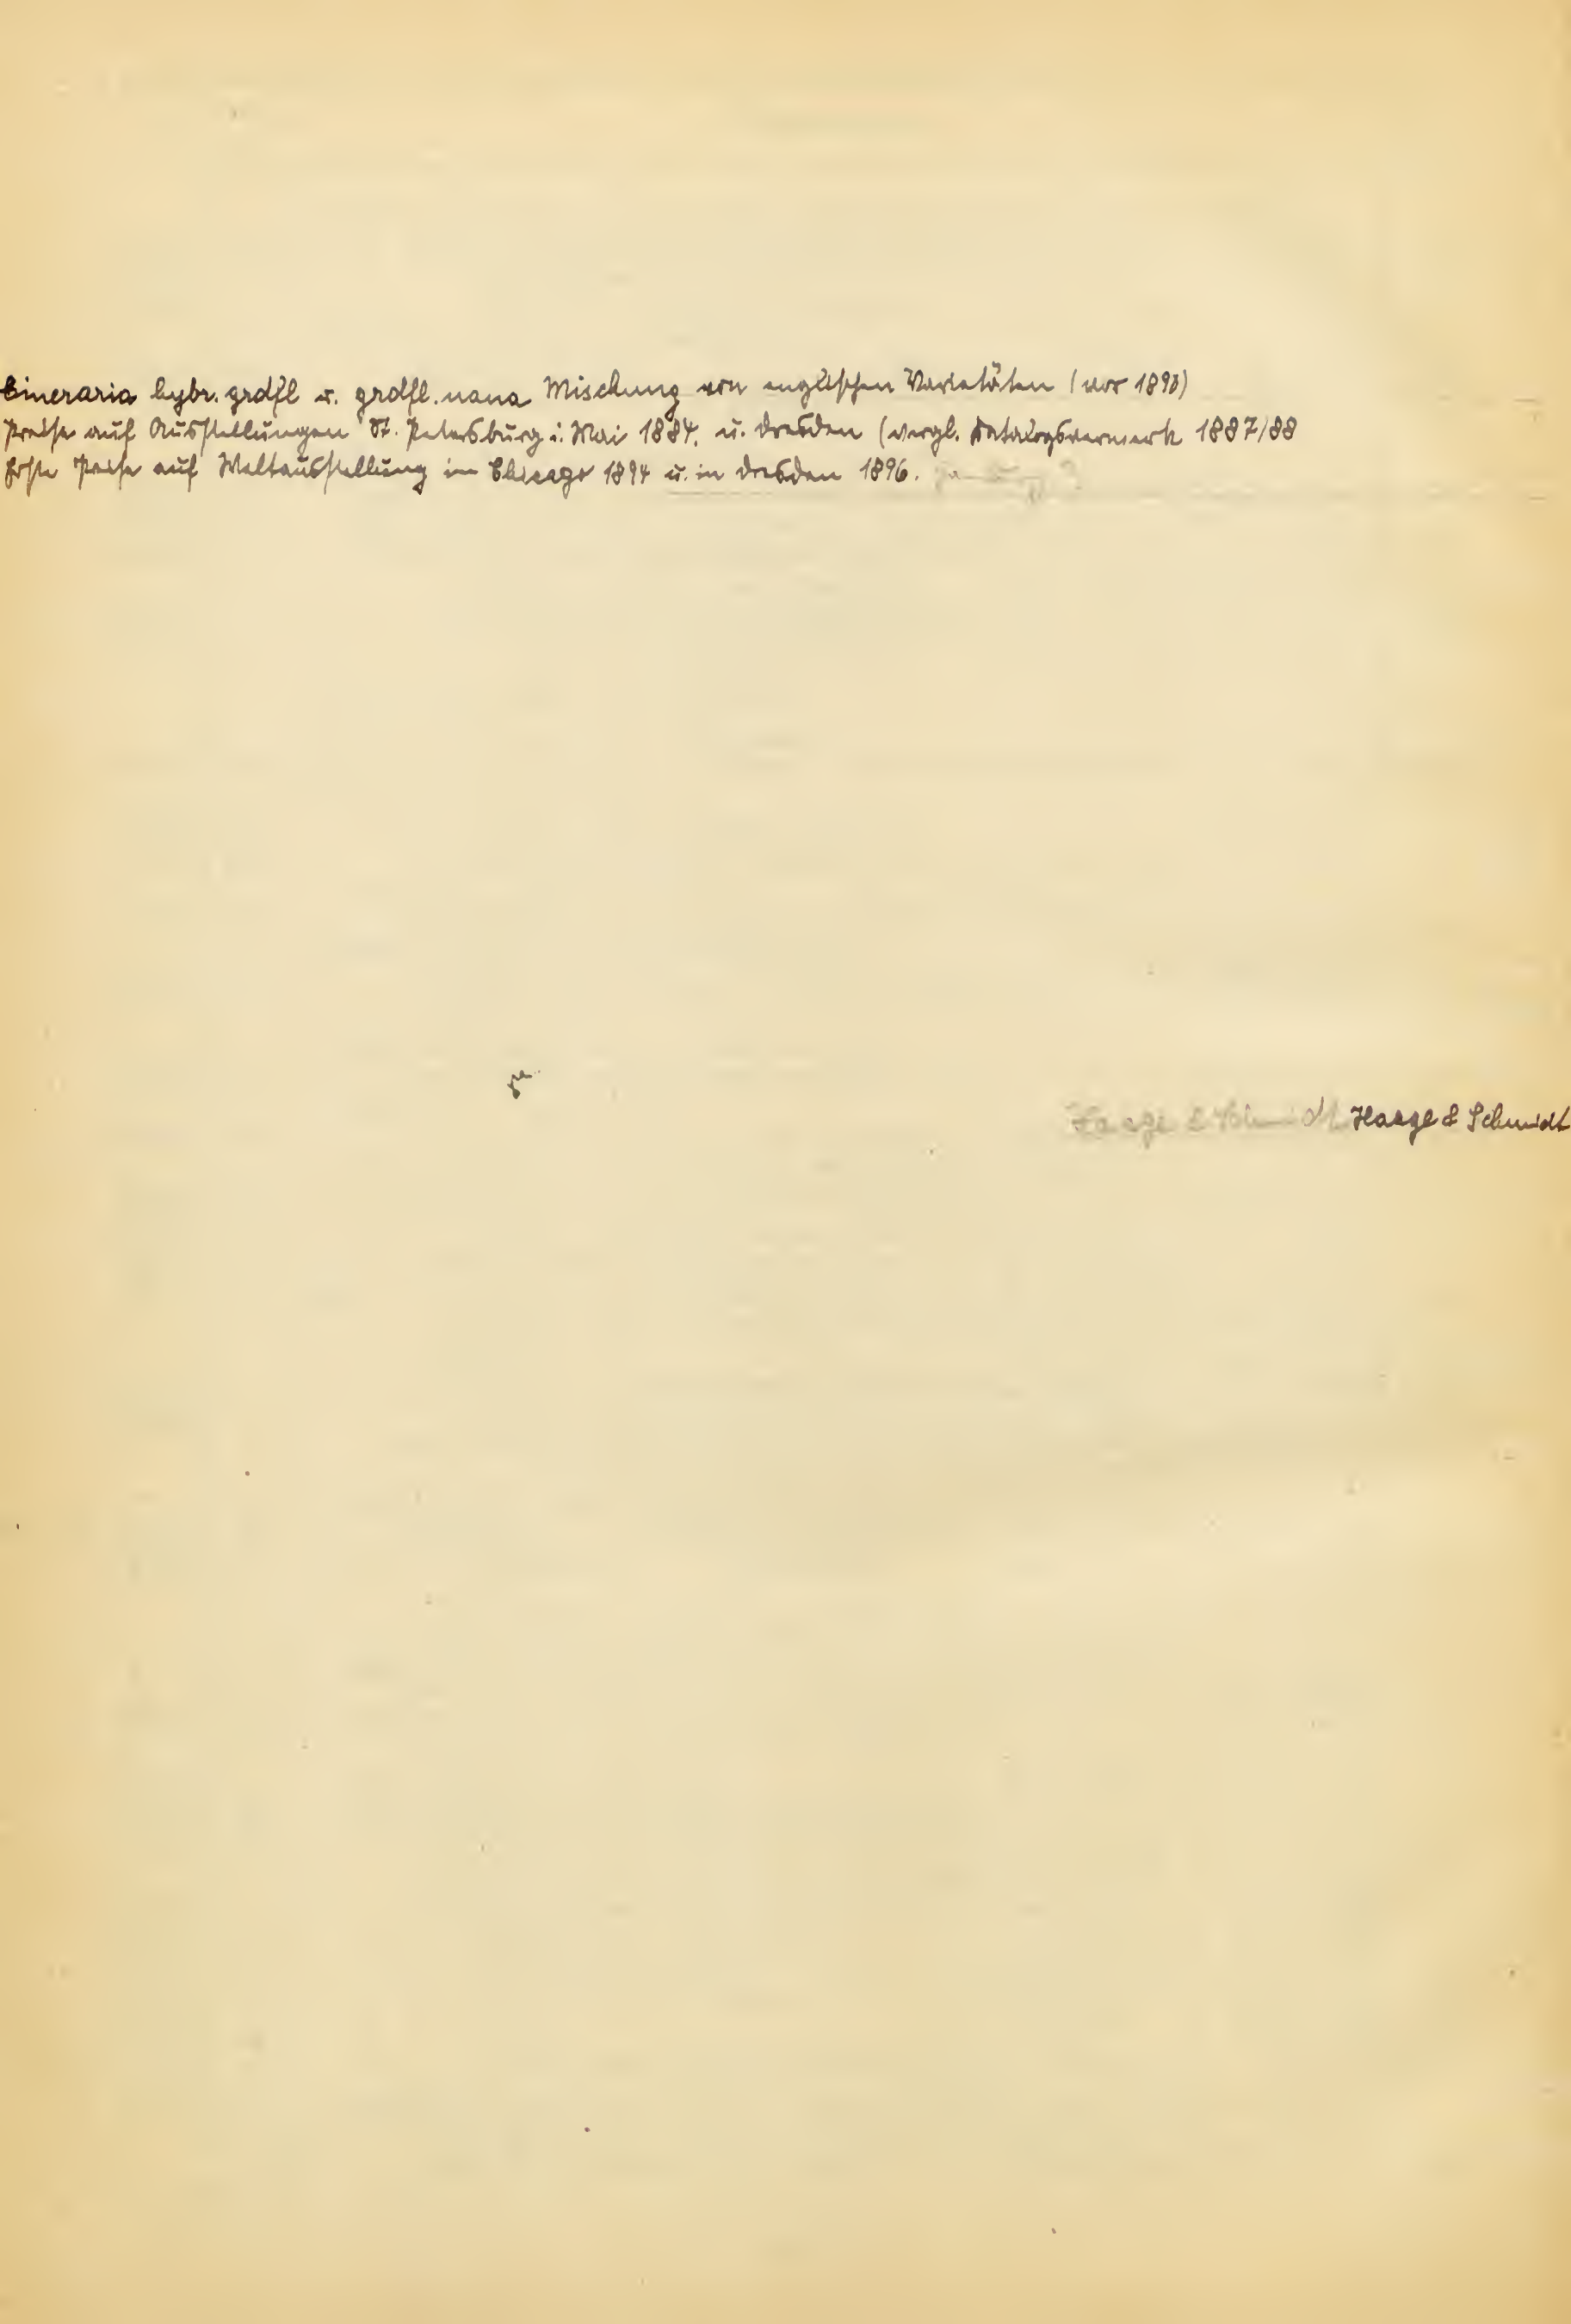 Cineraria hybr. grdfl u. grdfl. nana Mischung von englischen Varietäten (vor 1890)
Preise auf Ausstellungen St. Petersburg i. Mai 1884. u. Dresden (vergl. Katalogsvermerk 1887/88
Erste Preise auf Weltausstellung im Chicago 1894 u. in Dresden 1896.
Haage & Schmidt Haage & Schmidt